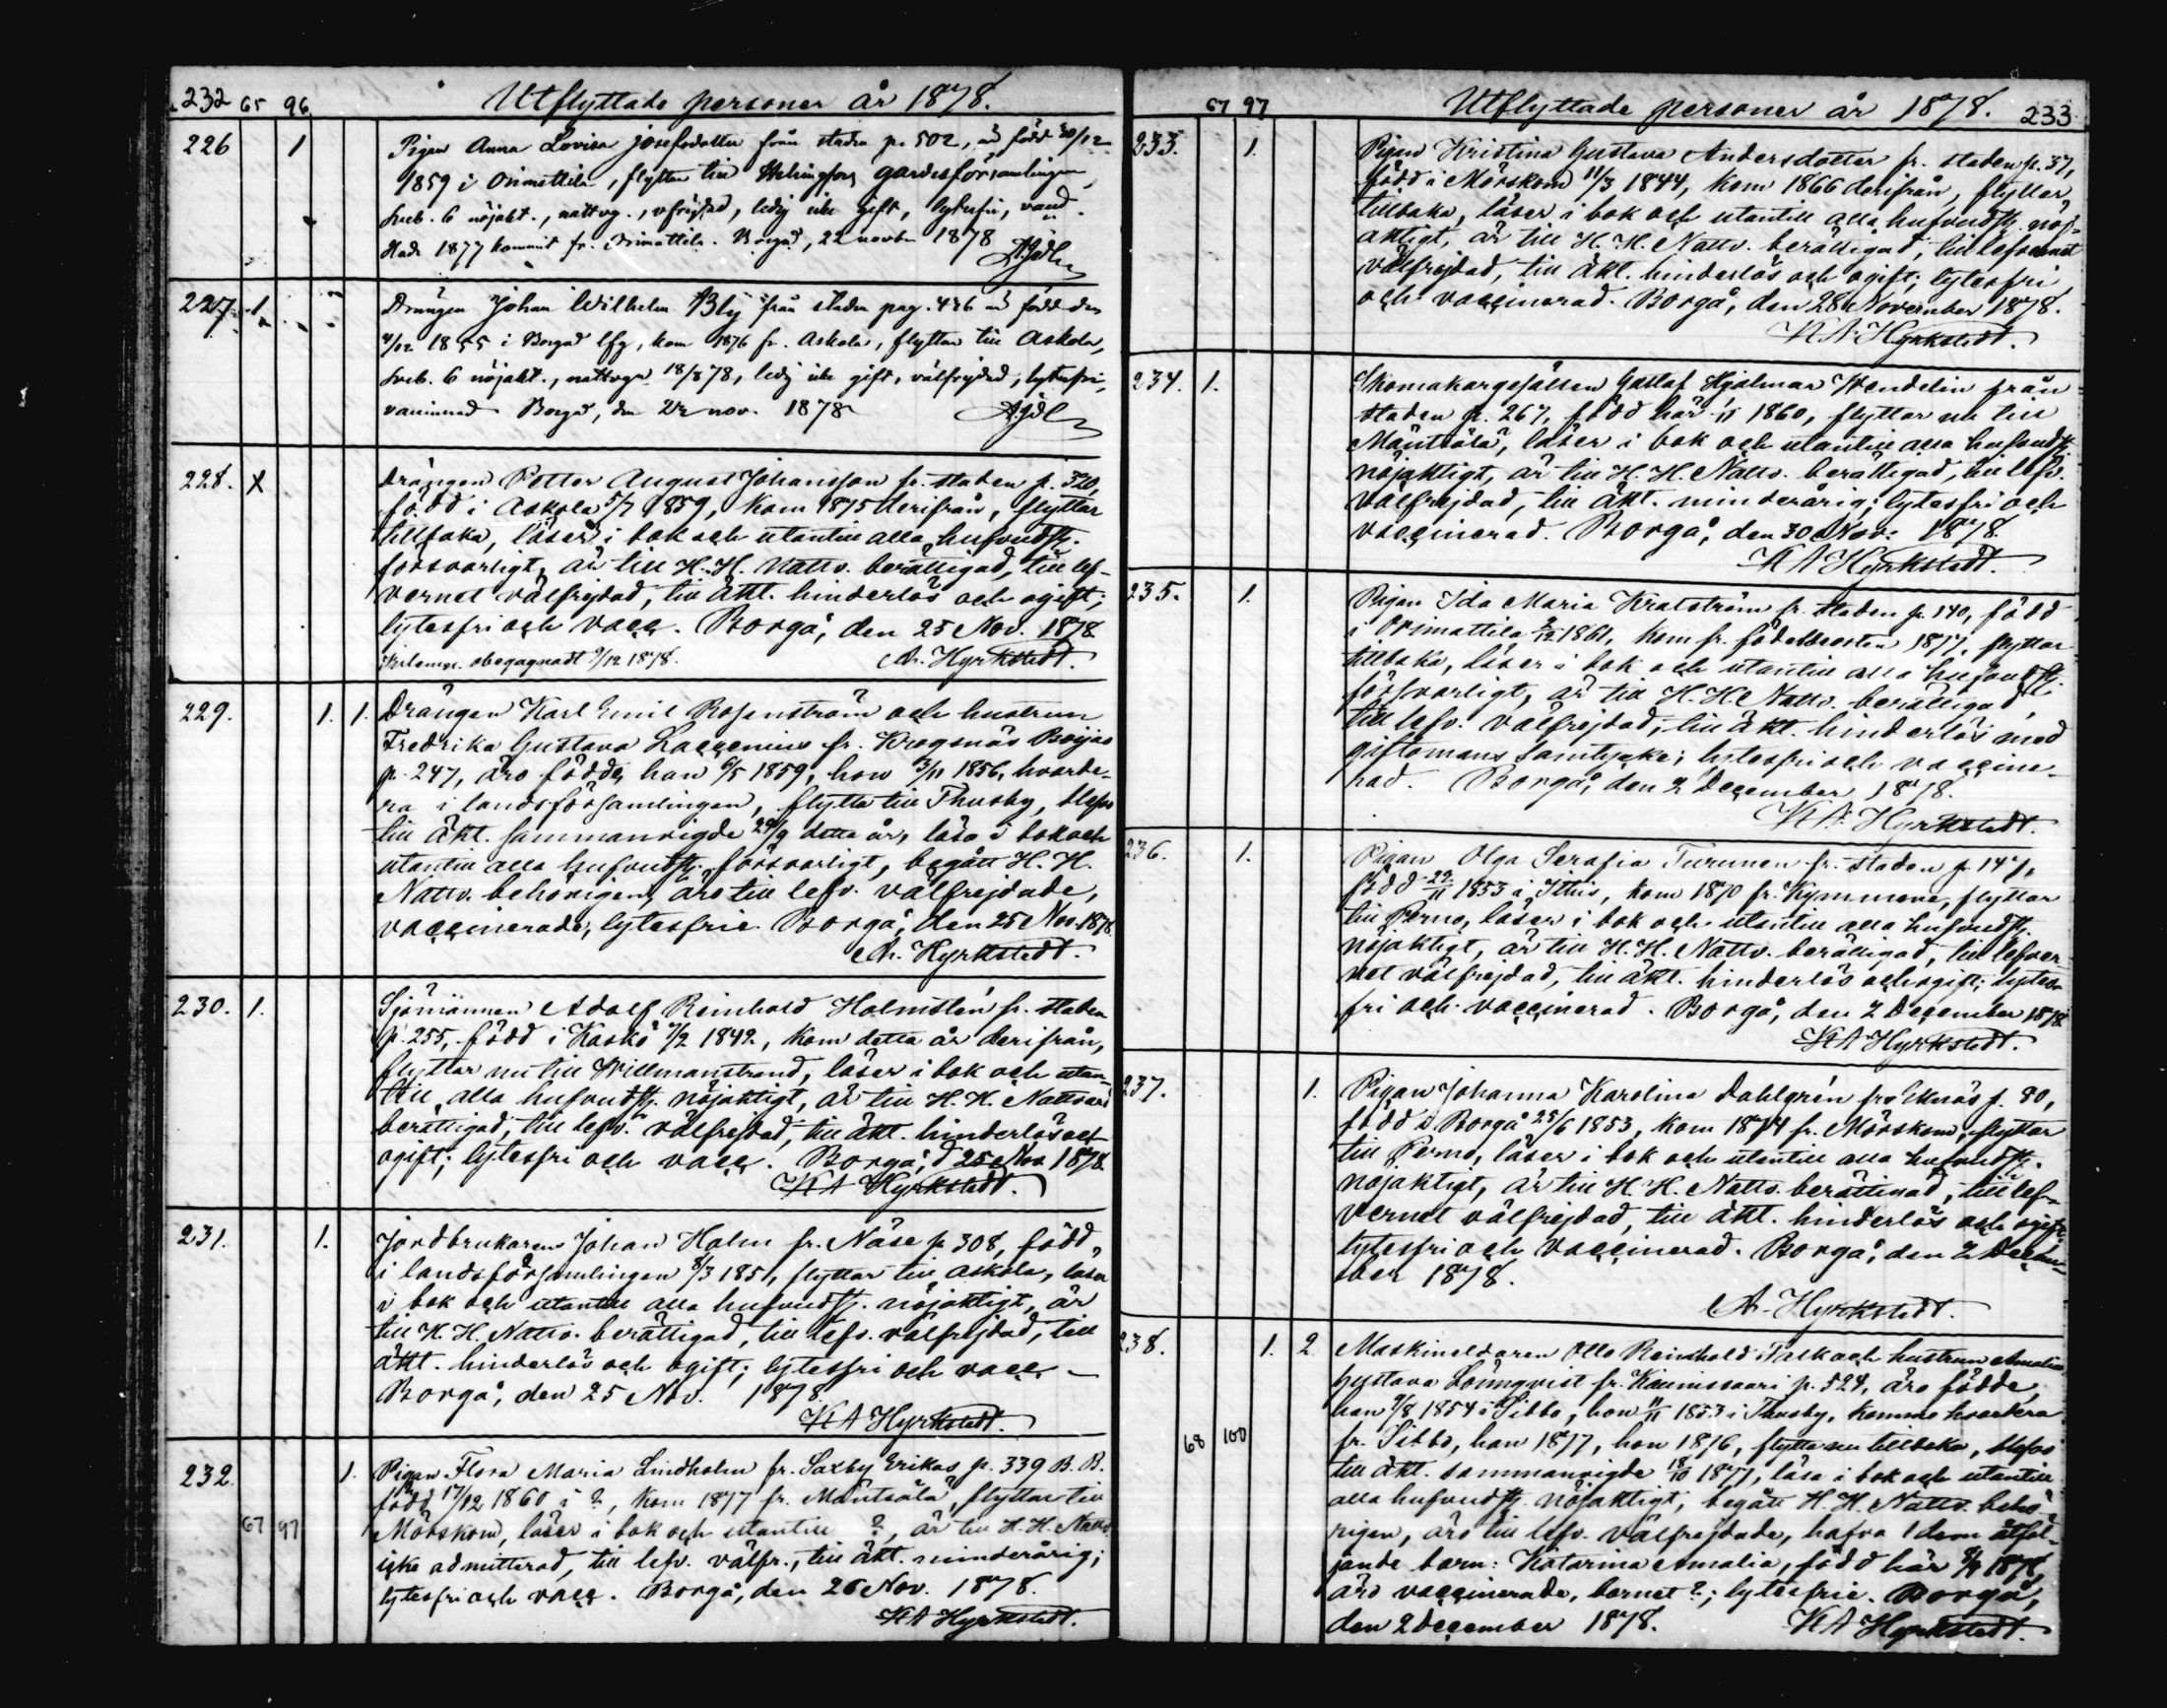 232 65 96 Utflyttade personer år 1878.
226 1 Pigan Anna Lovisa Josefsdotter från staden p. 502, är född 30/12
1859 i Orimattila, flyttar till Helsingfors gardesförsamlingen,
Sveb. 6 nöjakt., nattvg., vfrejdad, ledig icke gift, lytesfri, vacd.
Hade 1877 kommit fr. Orimattila. Borgå, 22 novbr 1878
227. 1. Drängen Johan Wilhelm Bly från staden pag. 426 är född den
4/12 1855 i Borgå lfg, kom 1876 fr. Askola, flyttar till Askola,
Sveb. 6 nöjakt., nattvgn 18/8 78, ledig icke gift, välfrejdad, lytesfri,
vaccinerad. Borgå, den 22 nov. 1878
228. X Drängen Petter August Johansson fr. staden p. 320,
född i Askola 5/7 1859, kom 1875 derifrån, flyttar
tillbaka, läser i bok och utantill alla hufvudst.
försvarligt, är till H. H. Nattv. berättigad, till lef-
vernet välfrejdad, till äkt. hinderlös och ogift;
lytesfri och vacc. Borgå, den 25 Nov. 1878
obegagnadt 9/12 1878. A. Hyrkstedt.
229. 1. 1. Drängen Karl Emil Rosenström och hustrun
Fredrika Gustava Laccenius fr. Krogsnäs Böijas
p. 247, äro födde, han 6/5 1859, hon 13/11 1856, hvarde-
ra i landsförsamlingen, flytta till Thusby, blefvo
till äkt. sammanvigde 29/9 detta år, läsa i bok och
utantill alla hufvudst. försvarligt, begått H. H.
Nattv. behörigen, äro till lefv. välfrejdade,
vaccinerade, lytesfrie. Borgå, den 25 Nov. 1878.
A. Hyrkstedt.
230. 1. Sjömannen Adolf Reinhold Holmstén fr. staden
p. 255, född i Kaskö 7/2 1842, kom detta år derifrån,
flyttar nu till Willmanstrand, läser i bok och utan-
till alla hufvudst. nöjaktigt, är till H. H. Nattvard
berättigad, till lefv. välfrejdad, till äkt. hinderlös och
ogift; lytesfri och vacc. Borgå, d 25 Nov. 1878.
K A Hyrkstedt.
231. 1. Jordbrukaren Johan Holm fr. Näse p. 308, född
i landsförsamlingen 8/3 1851, flyttar till Askola, läser
i bok och utantill alla hufvudst. nöjaktigt, är
till H. H. Nattv. berättigad, till lefv. välfrejdad, till
äkt. hinderlös och ogift; lytesfri och vacc –
Borgå, den 25 Nov. 1878.
K A Hyrkstedt.
232. 1. Pigan Flora Maria Lindholm fr. Saxby Erikas p. 339 B. B.
född 17/12 1860 i ?, kom 1877 fr. Mäntsälä, flyttar till
67 97 Mörskom, läser i bok och utantill ?, är till H. H. Nattv.
icke admitterad, till lefv. välfr., till äkt. minderårig;
lytesfri och vacc. Borgå, den 26 Nov. 1878.
K A Hyrkstedt.
67 97 Utflyttade personer år 1878. 233
233. 1. Pigan Kristina Gustava Andersdotter fr. staden p. 37,
född i Mörskom 11/3 1844, kom 1866 derifrån, flyttar
tillbaka, läser i bok och utantill alla hufvudst. nöj-
aktigt, är till H. H. Nattv. berättigad, till lefvernet
välfrejdad, till äkt. hinderlös och ogift; lytesfri
och vaccinerad. Borgå, den 28 November 1878.
K A Hyrkstedt.
234. 1. Skomakargesällen Gustaf Hjalmar Wendelin från
staden p. 267, född här 1/11 1860, flyttar nu till
Mäntsälä, läser i bok och utantill alla hufvudst.
nöjaktigt, är till H. H. Nattv. berättigad, till lefv.
välfrejdad, till äkt. minderårig; lytesfri och
vaccinerad. Borgå, den 30 Nov. 1878.
K A Hyrkstedt.
235. 1. Pigan Ida Maria Kratström fr. staden p. 140, född
i Orimattila 2/12 1861, kom fr. födelseorten 1877, flyttar
tillbaka, läser i bok och utantill alla hufvudst.
försvarligt, är till H. H. Nattv. berättigad,
till lefv. välfrejdad, till äkt. hinderlös med
giftomans samtycke; lytesfri och vaccine-
rad. Borgå, den 2 December 1878.
K A Hyrkstedt.
236. 1. Pigan Olga Serafia Turunen fr. staden p. 147,
född 29/11 1853 i Ithis, kom 1870 fr. Kymmene, flyttar
till Perno, läser i bok och utantill alla hufvudst.
nöjaktigt, är till H. H. Nattv. berättigad, till lefver
net välfrejdad, till äkt. hinderlös och ogift; lytes-
fri och vaccinerad. Borgå, den 2 December 1878
K A Hyrkstedt.
237. 1. Pigan Johanna Karolina Dahlgrén fr. Eknäs p. 80,
född i Borgå 25/6 1853, kom 1874 fr. Mörskom, flyttar
till Perno, läser i bok och utantill alla hufvudst.
nöjaktigt, är till H. H. Nattv. berättigad, till lef-
vernet välfrejdad, till äkt. hinderlös och ogift,
lytesfri och vaccinerad. Borgå, den 2 Decem-
ber 1878.
A. Hyrkstedt.
238. 1. 2. Maskineldaren Otto Reinhold Falk och hustrun Amalia
Gustava Lönnqvist fr. Kaunissaari p. 524, äro födde,
han 9/8 1854 i Sibbo, hon 11/11 1853 i Thusby, kommo hvardera
68 100 fr. Sibbo, han 1877, hon 1876, flytta nu tillbaka, blefvo
till äkt. sammanvigde 18/10 1877, läsa i bok och utantill
alla hufvudst. nöjaktigt, begått H. H. Nattv. behö-
rigen, äro till lefv. välfrejdade, hafva 1 dem åtföl-
jande barn: Katarina Amalia, född här 1878,
äro vaccinerade, barnet ?; lytesfrie. Borgå,
den 2 December 1878. K A Hyrkstedt.